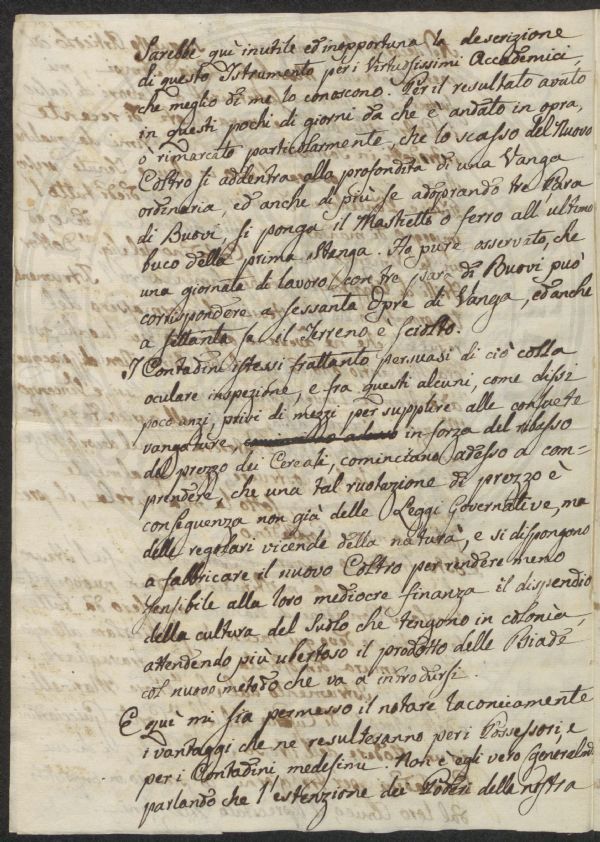 Sarebbe quì inutile ed inopportuna la descrizione
di questo Istrumento per i Virtuosissimi Accademici,
che meglio di me lo conoscono. Per il resultato avuto
in questi pochi di giorni da che è andato in opra,
ò rimarcato particolarmente, che lo scasso del Nuovo
Coltro si addentra alla profondità di una Vanga
ordinaria, ed anche di più se adoprando tre Para
di Buovi, si ponga il Mastietto o ferro all'ultimo
buco della prima stanga. Ho pure osservato, che
una giornata di lavoro con tre para di Buovi può
corrispondere a sessanta Opre di Vanga, ed anche
a settanta se il Terreno è sciolto.
I Contadini istessi frattanto persuasi di ciò colla
oculare inspezione, e fra questi alcuni, come dissi
poco anzi, privi di mezzi per supplire alle consuete
vangature, in forza del ribasso
del prezzo dei Cereali, cominciano adesso a com=
prendere, che una tal ruotazione di prezzo è
conseguenza non già delle Leggi Governative, ma
delle regolari vicende della natura, e si dispongono
a fabbricare il nuovo Coltro per rendere meno
sensibile alla loro mediocre finanza il dispendio
della cultura del Suolo che tengono in colonìa,
attendendo più ubertoso il prodotto delle Biade
col nuovo metodo che va a introdursi.
E quì mi sia permesso il notare laconicamente
i vantaggi che ne resulteranno per i Possessori, e
per i Contadini medesimi. Non è egli vero general.
parlando che l'estenzione dei Poderi della nostra